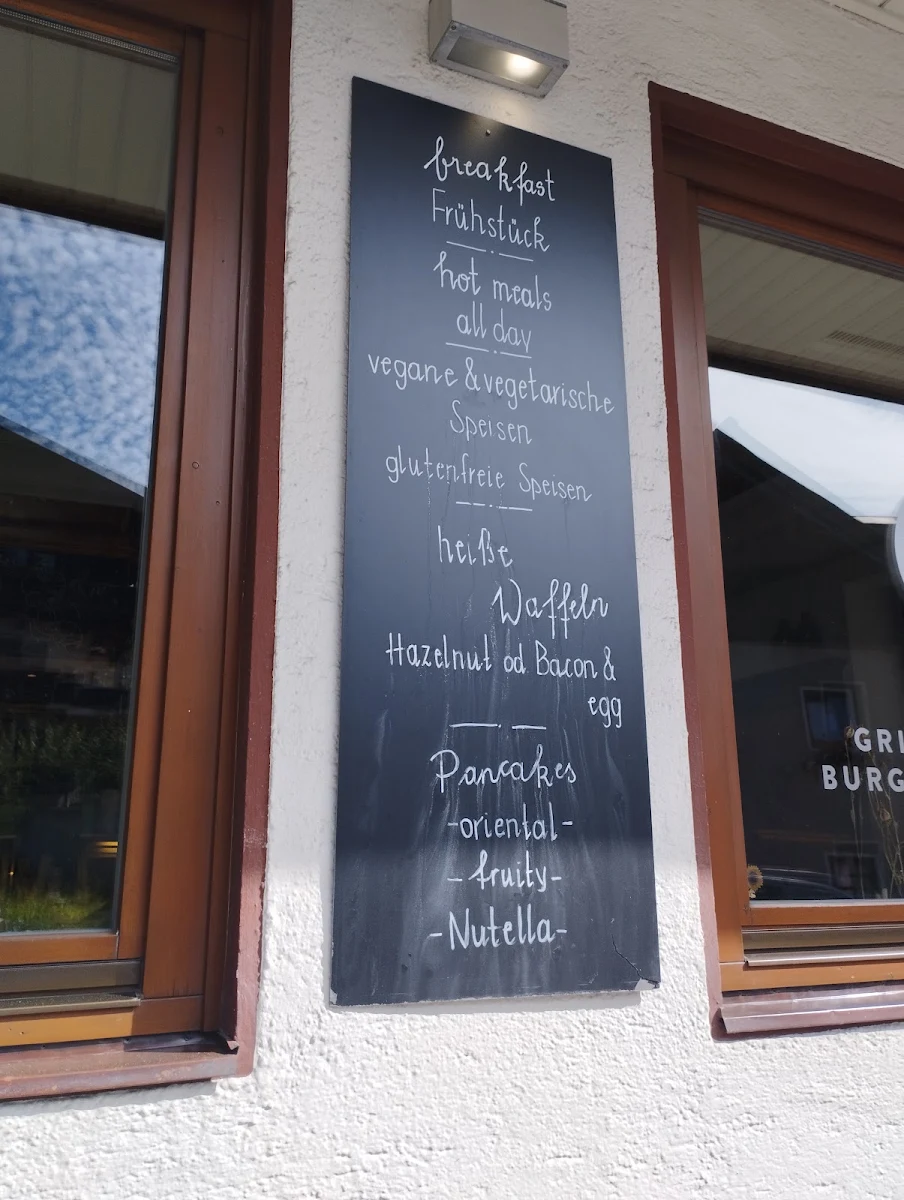 breakfast
Frühstück
hot meals
all day
vegane & vegetarische
Speisen
glutenfreie Speisen
heiße
Waffeln
Hazelnut od Bacon &
egg
Pancakes
-oriental-
- fruity-
-Nutella-
GRI
BURG